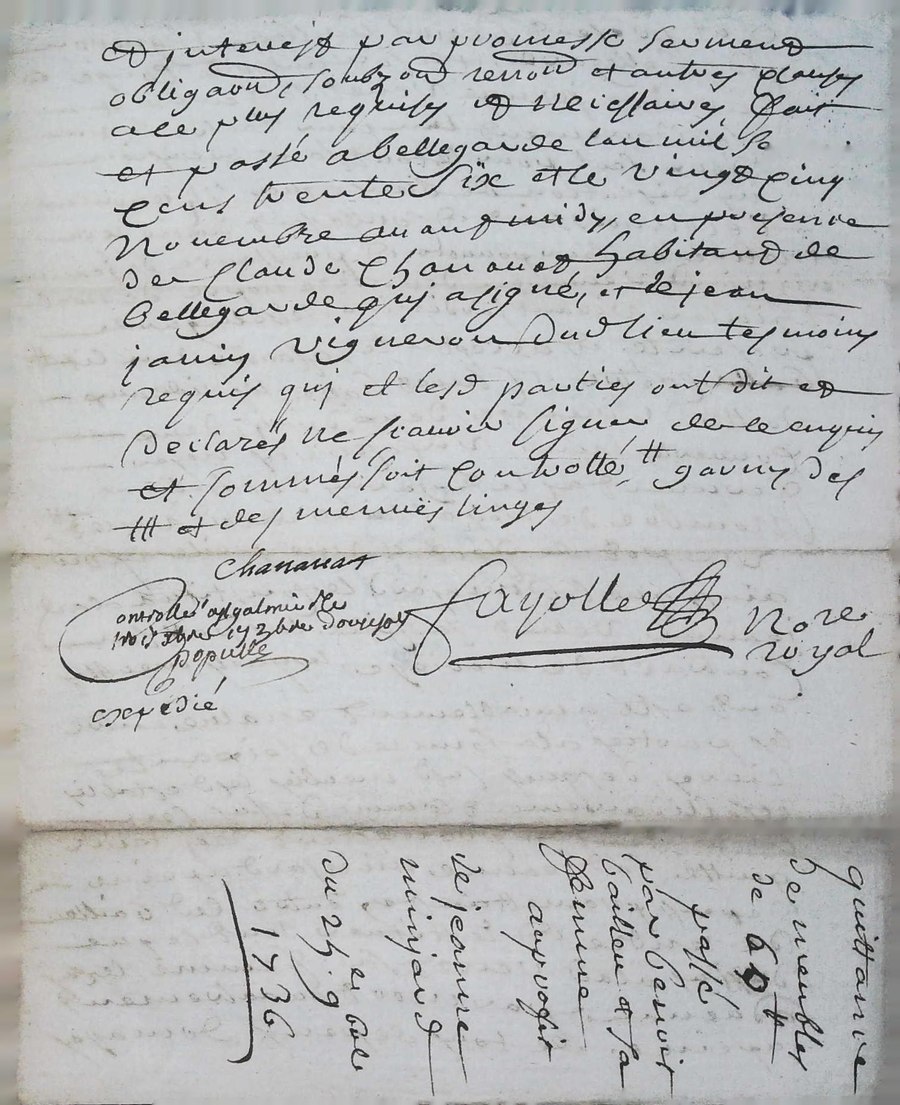 et interest par promesse serment
obligaon, soubzon renon et autres clauses
a ce plus requises et necessaires fait
et passé a bellegarde l'an mil se
cens trente six et le vingt cinq
novembre avant midy, en presence
de Claude Chanauat habitant de
bellegarde qui a signé, et de jean
janin vigneron dud lieu tesmoins
requis qui et lesd parties ont dit et
declarés ne scavoir signer de ce enquis
et sommés soit controllé, # garnis des
## et des mennües linges
Chanauat
Controllé a st galmier le
trois xbre 1736 douze sols
populle
expedié
fayolle No re
royal
quittance
de meubles
de 60 #
passé
par benoit
baillieu et sa
femme
au profit
de jeanne
minjard
du 25e 9 bre
1736